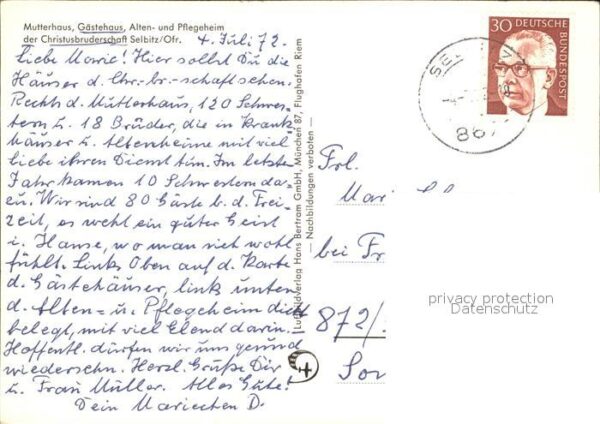 Mutterhaus, Gästehaus, Alten- und Pflegeheim
der Christusbruderschaft Selbitz/Ofr.
4. Juli 72.
Liebe Marie! Hier sollst Du die
Häuser d. Chr.-br.-schaft sehen.
Rechts d. Mutterhaus, 120 Schwes-
tern u. 18 Brüder, die in Krank-
häuser u. Altenheime mit viel
Liebe ihren Dienst tun. Im letzten
Jahr kamen 10 Schwestern da-
zu. Wir sind 80 Gäste b. d. Frei-
zeit, es weht ein guter Geist
i. Hause, wo man sich wohl
fühlt. Links Oben auf d. Karte
d. Gästehäuser, link unten
d. Alten- u. Pflegeheim dicht
belegt, mit viel Elend darin.
Hoffentl. dürfen wir uns gesund
wiedersehn. Herzl. Grüße Dir
u. Frau Müller. Alles Gute!
Dein Mariechen D.
Luftbildverlag Hans Bertram GmbH, München 87, Flughafen Riem
— Nachbildungen verboten —
30 DEUTSCHE BUNDESPOST
867
Frl.
Mar
bei Fr
872/.
Sor
privacy protection
Datenschutz